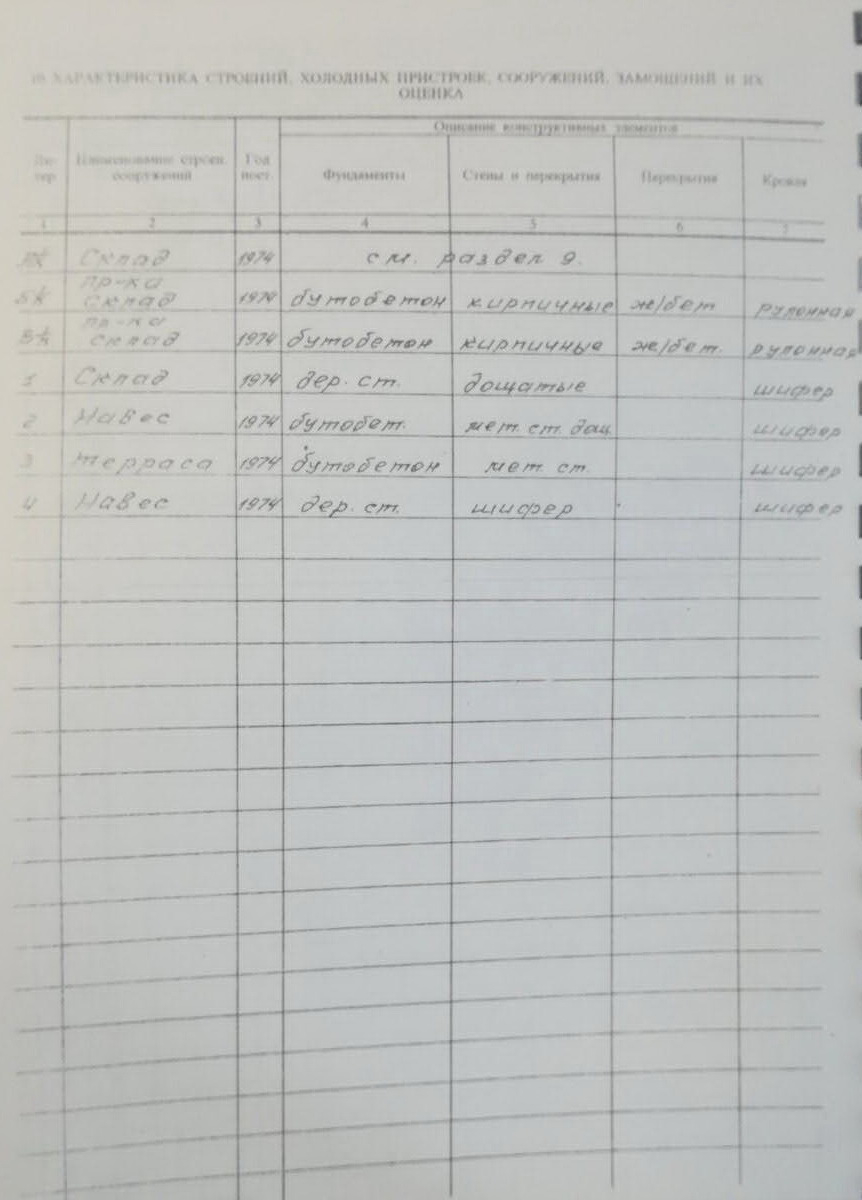 10 ХАРАКТЕРИСТИКА СТРОЕНИЙ, ХОЛОДНЫХ ПРИСТРОЕК, СООРУЖЕНИЙ, ЗАМОЩЕНИЙ И ИХ
ОЦЕНКА
Описание конструктивных элементов
Ли-
тер
Наименование строен.
сооружений
Год
пост.
Фундаменты
Стены и перекрытия
Перекрытия
Кровля
1 2 3 4 5 6 7
Склад 1974 см. раздел 9.
пр-ка
склад 1974 бутобетон кирпичные ж/бет рулонная
пр-ка
склад 1974 бутобетон кирпичные ж/бет. рулонная
1 Склад 1974 дер. ст. дощатые шифер
2 Навес 1974 бутобет. мет. ст. дощ. шифер
3 терраса 1974 бутобетон мет. ст. шифер
4 Навес 1974 дер. ст. шифер шифер